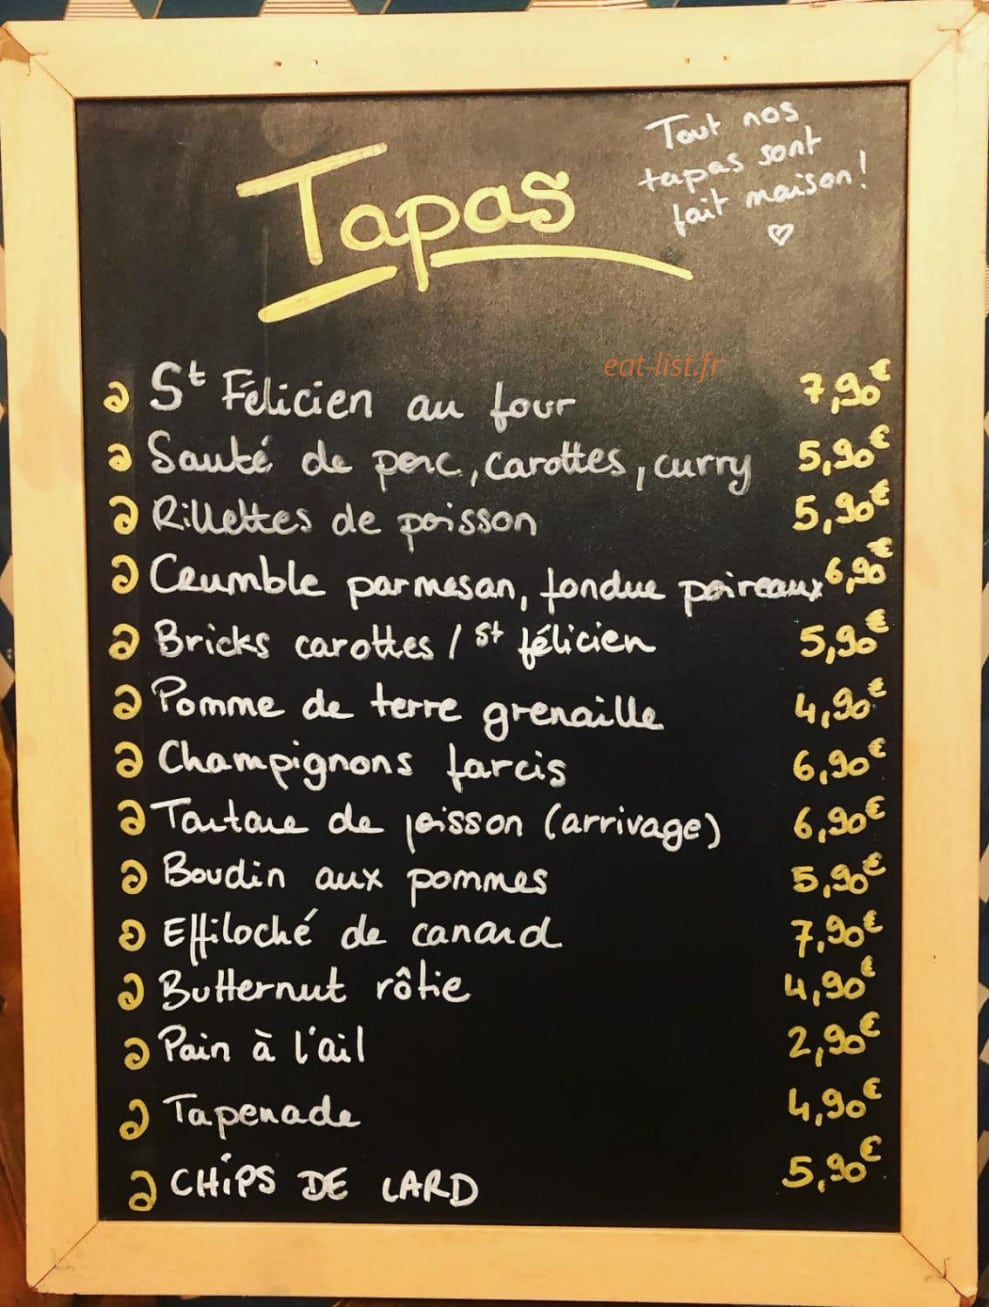 Tapas
Tout nos
tapas sont
fait maison!
eat-list.fr
St Félicien au four 7,90€
Sauté de porc, carottes, curry 5,90€
Rillettes de poisson 5,90€
Crumble parmesan, fondue poireaux 6,90€
Bricks carottes / St félicien 5,90€
Pomme de terre grenaille 4,90€
Champignons farcis 6,90€
Tartare de poisson (arrivage) 6,90€
Boudin aux pommes 5,90€
Effiloché de canard 7,90€
Butternut rôtie 4,90€
Pain à l'ail 2,90€
Tapenade 4,90€
CHiPS DE LARD 5,90€